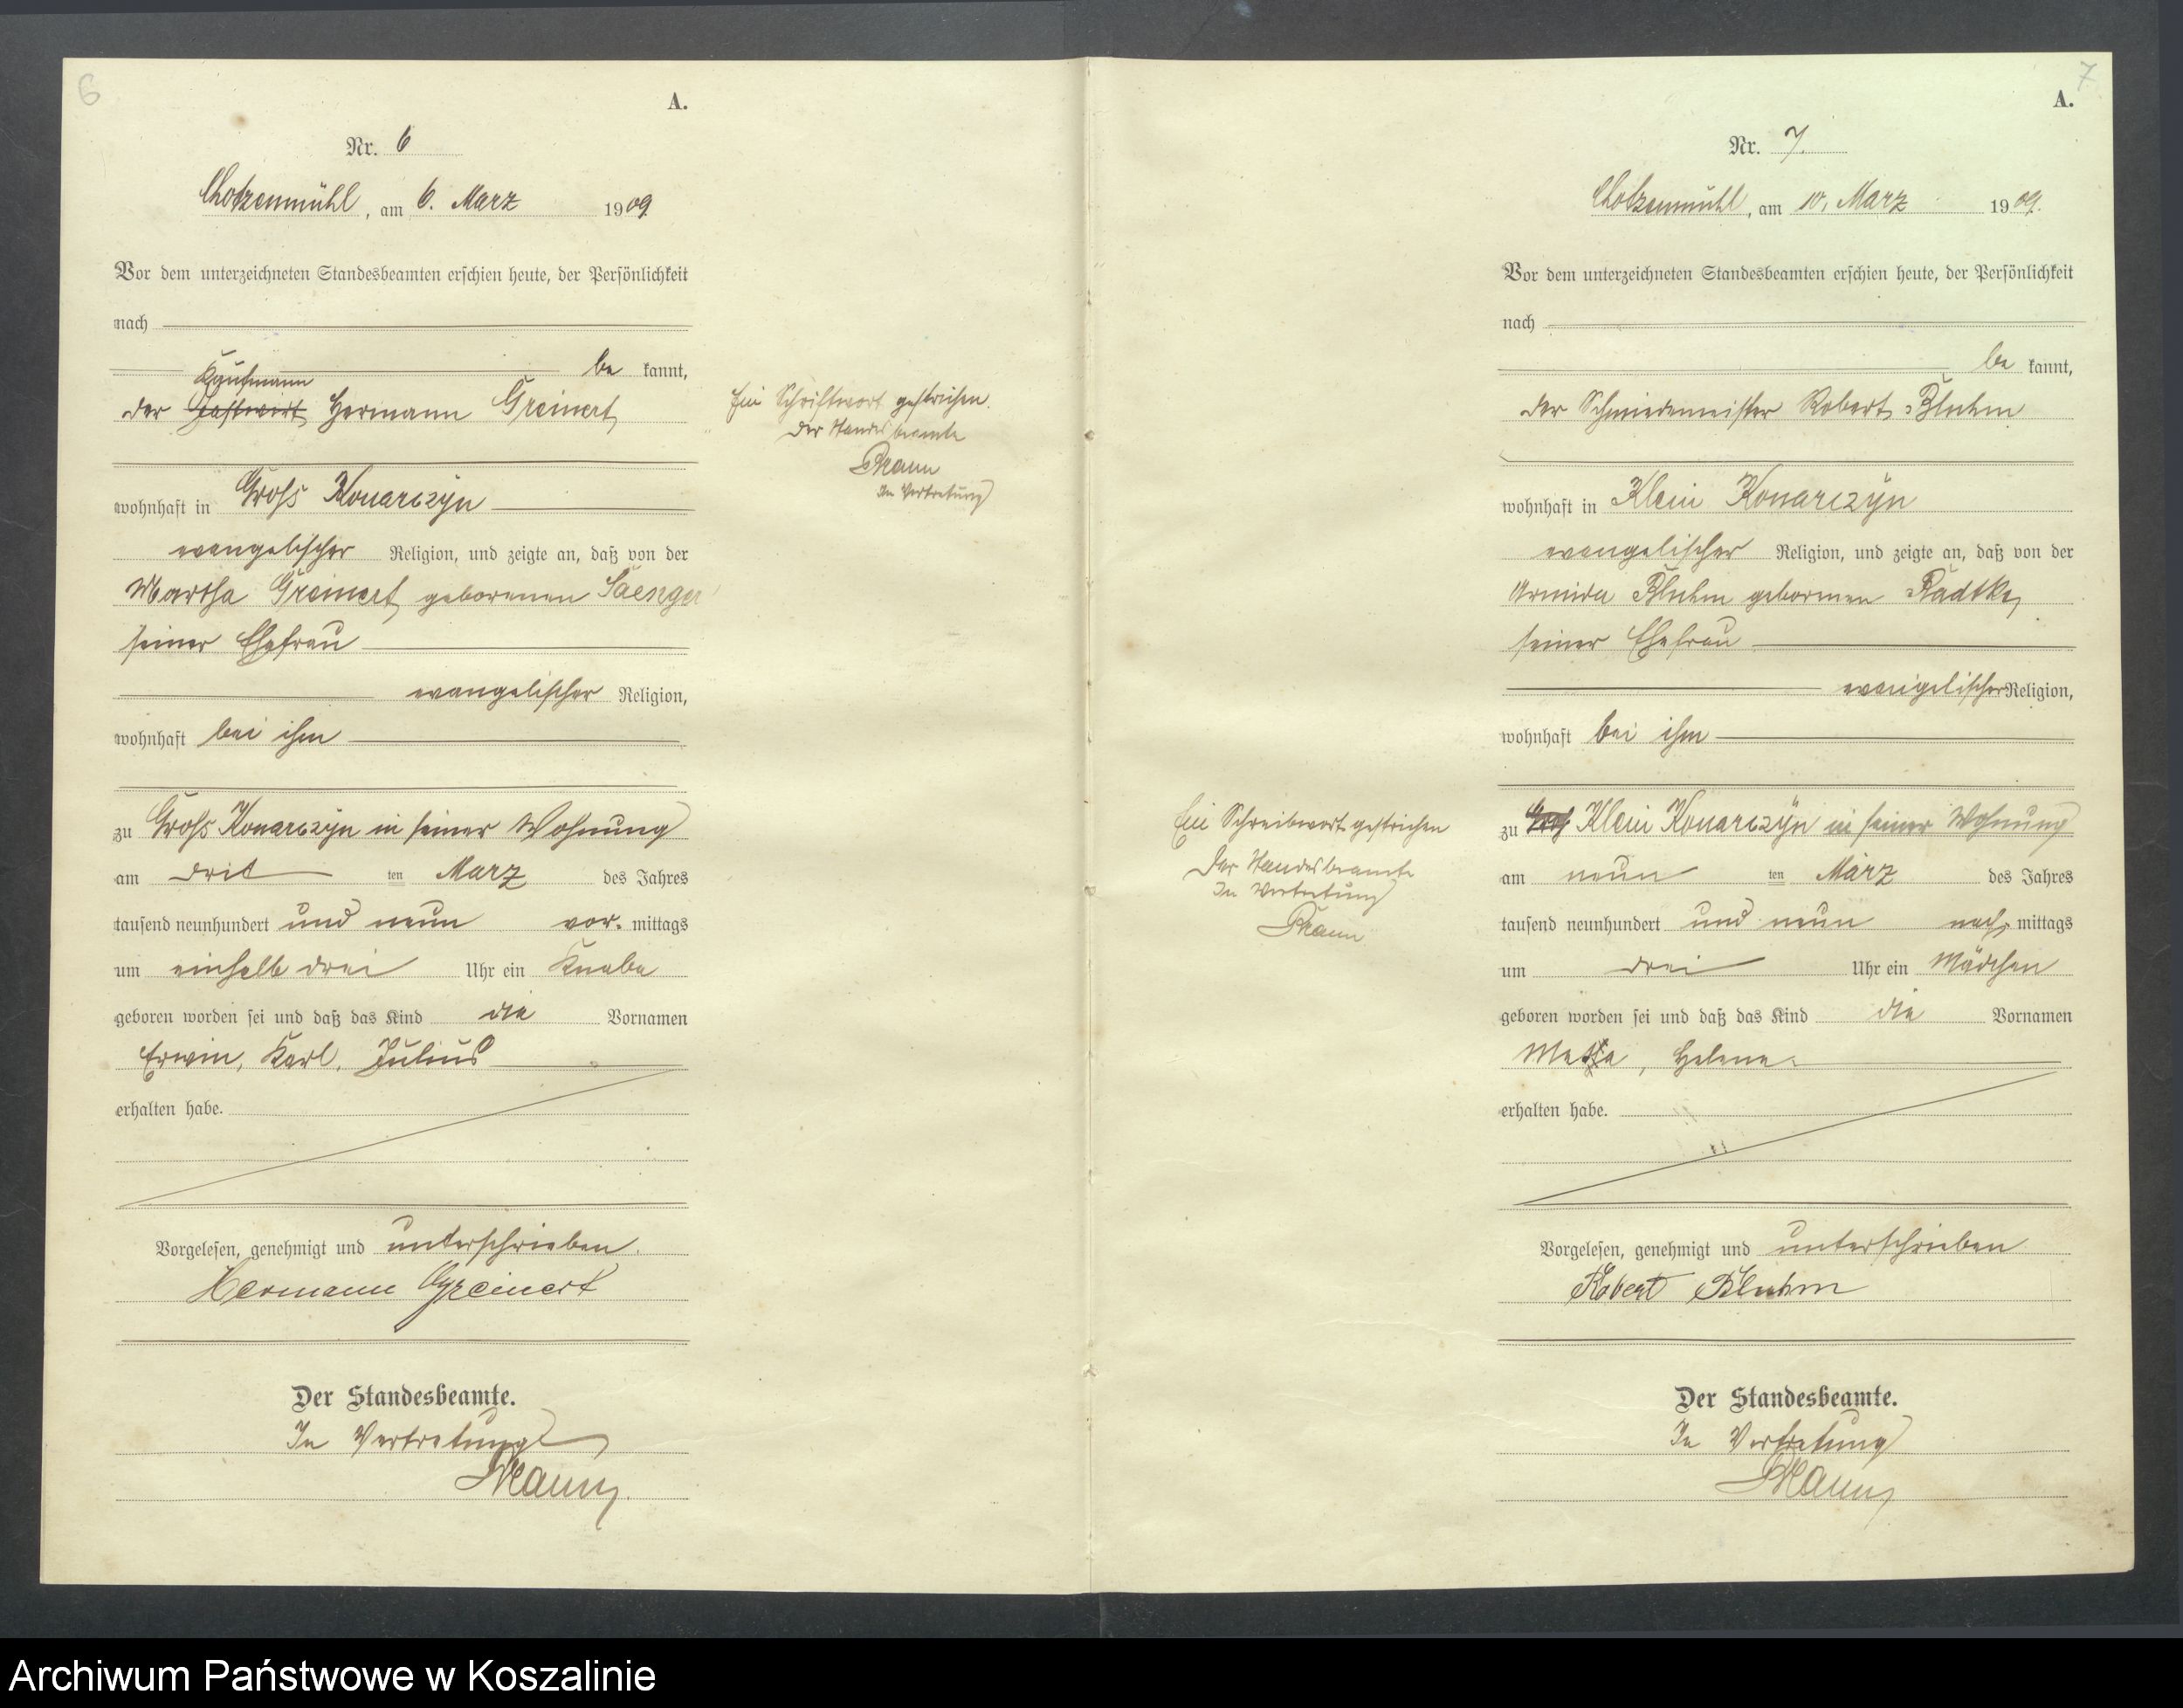 6
A.
Nr. 6
Chotzenmühl, am 6. März 1909
Vor dem unterzeichneten Standesbeamten erschien heute, der Persönlichkeit
nach
be kannt,
Kaufmann
der Gastwirt Hermann Greinert,
wohnhaft in Groß Konarczyn
evangelischer Religion, und zeigte an, daß von der
Martha Greinert, geborenen Saenger
seiner Ehefrau
evangelischer Religion,
wohnhaft bei ihm
zu Groß Konarczyn in seiner Wohnung
am drit ten März des Jahres
tausend neunhundert und neun vor mittags
um einhalb drei Uhr ein Knabe
geboren worden sei und daß das Kind die Vornamen
Erwin, Karl, Julius
erhalten habe.
Vorgelesen, genehmigt und unterschrieben.
Hermann Greinert
Der Standesbeamte.
In Vertretung
Ein Schriftwort gestrichen.
Der Standesbeamte
In Vertretung
7
A.
Nr. 7.
Chotzenmühl, am 10. März 1909.
Vor dem unterzeichneten Standesbeamten erschien heute, der Persönlichkeit
nach
be kannt,
der Schmiedemeister Robert Bluhm
wohnhaft in Klein Konarczyn
evangelischer Religion, und zeigte an, daß von der
Bluhm geborenen Radtke,
seiner Ehefrau
evangelischer Religion,
wohnhaft bei ihm
zu Groß Klein Konarczyn in seiner Wohnung
am neun ten März des Jahres
tausend neunhundert und neun nach mittags
um drei Uhr ein Mädchen
geboren worden sei und daß das Kind die Vornamen
Helene
erhalten habe.
Vorgelesen, genehmigt und unterschrieben
Robert Bluhm
Der Standesbeamte.
In Vertretung
Ein Schreibwort gestrichen
Der Standesbeamte
In Vertretung
Archiwum Państwowe w Koszalinie